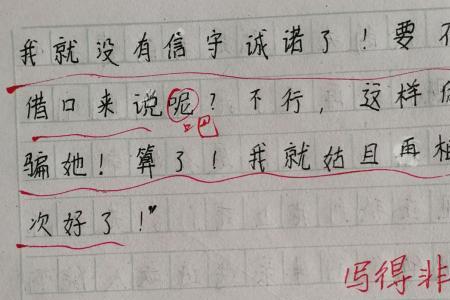 我就没有信守诚诺了！要不
借口来说呢？不行，这样
吧
骗她！算了！我就姑且再相
次好了！
写得非